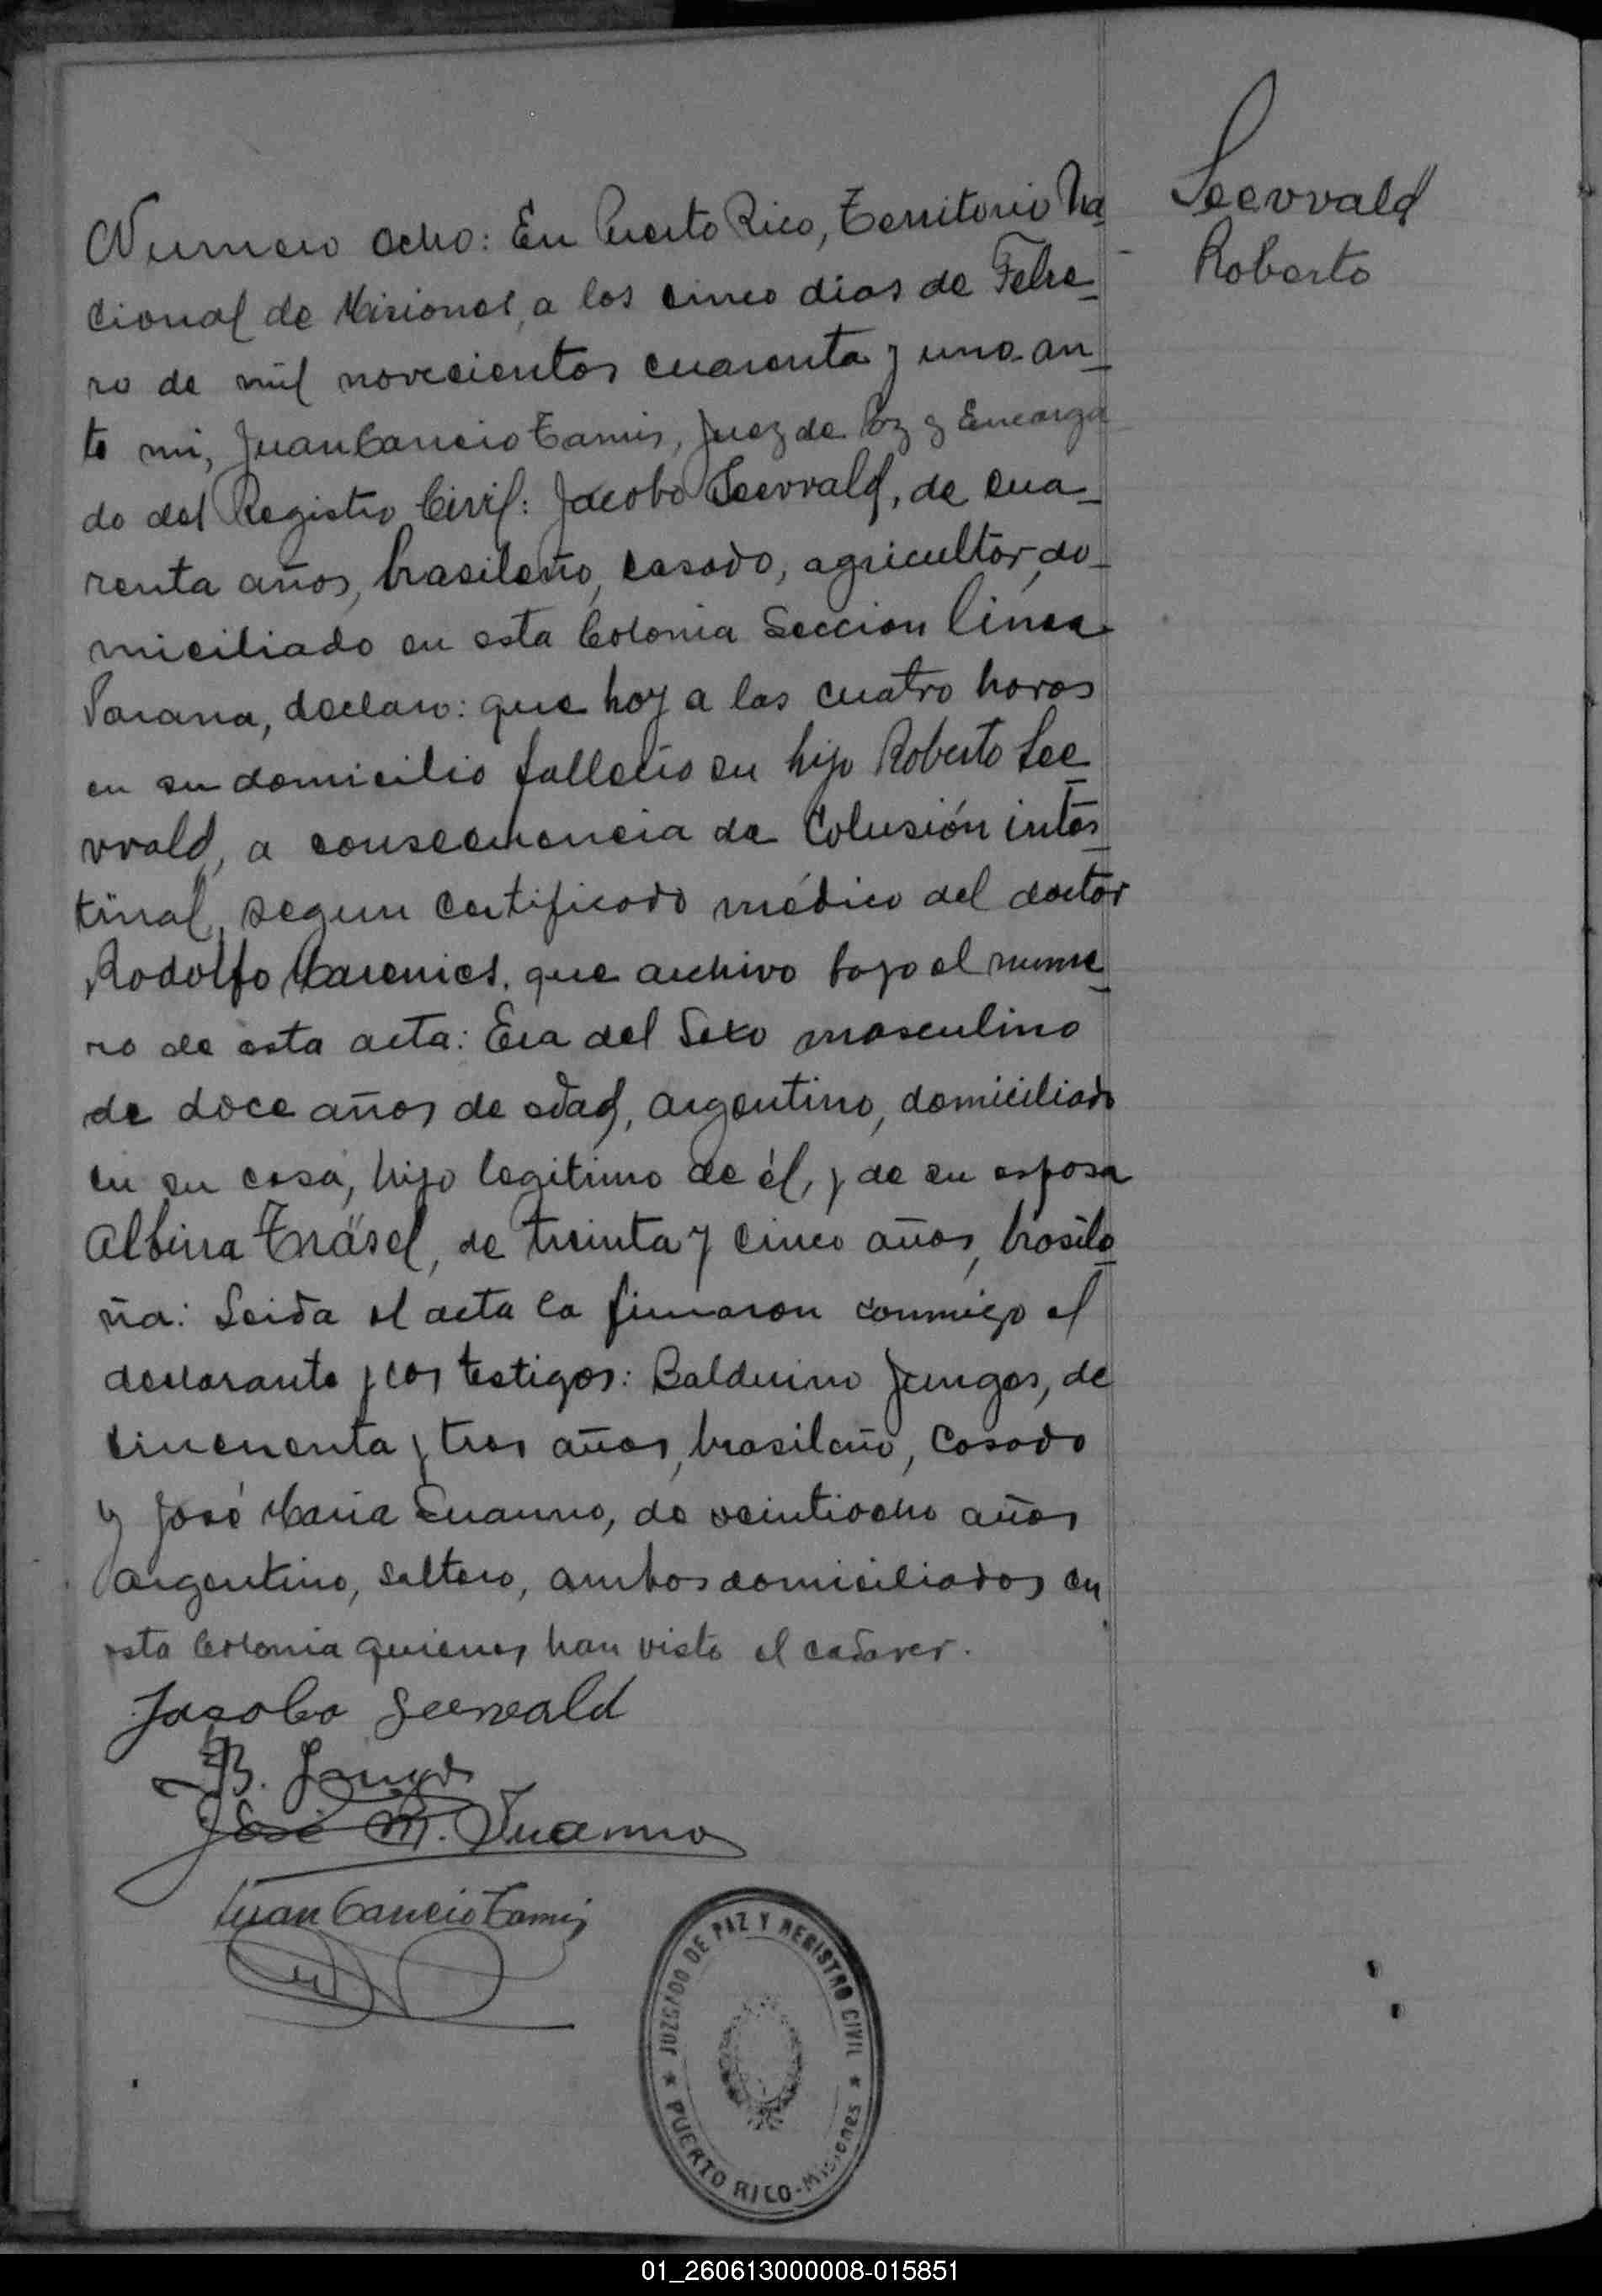 Seevvald
Roberto
Numero ocho: En Puerto Rico, Territorio Na_
cional de Misiones, a los cinco dias de Febre_
ro de mil novecientos cuarenta y uno an_
te mi, Juan Cancio Tamis, Juez de Paz y Encarga
do del Registro Civil: Jacobo Seevvald, de cua_
renta años, brasileño, casado, agricultor, do_
miciliado en esta Colonia Seccion Linea
Parana, declaro: que hoy a las cuatro horas
en su domicilio fallecio su hijo Roberto See_
vvald, a consecuencia de Colusión intes_
tinal, segun certificado médico del doctor
Rodolfo que archivo bajo el nume_
ro de esta acta: Era del Sexo masculino
de doce años de edad, argentino, domiciliado
en su casa, hijo legitimo de él, y de su esposa
Albina Träsel, de treinta y cinco años, brasile_
ña: Leida el acta la firmaron conmigo el
declarante y los testigos: Balduino Junges, de
cincuenta y tres años, brasileño, Casado
y José Maria de veintiocho años
argentino, soltero, ambos domiciliados en
esta Colonia quienes han visto el cadaver.
Jacobo Seewald
B. Junges
José M.
Juan Cancio Tamis
JUZGADO DE PAZ Y REGISTRO CIVIL
★ PUERTO RICO-Misiones ★
01_260613000008-015851